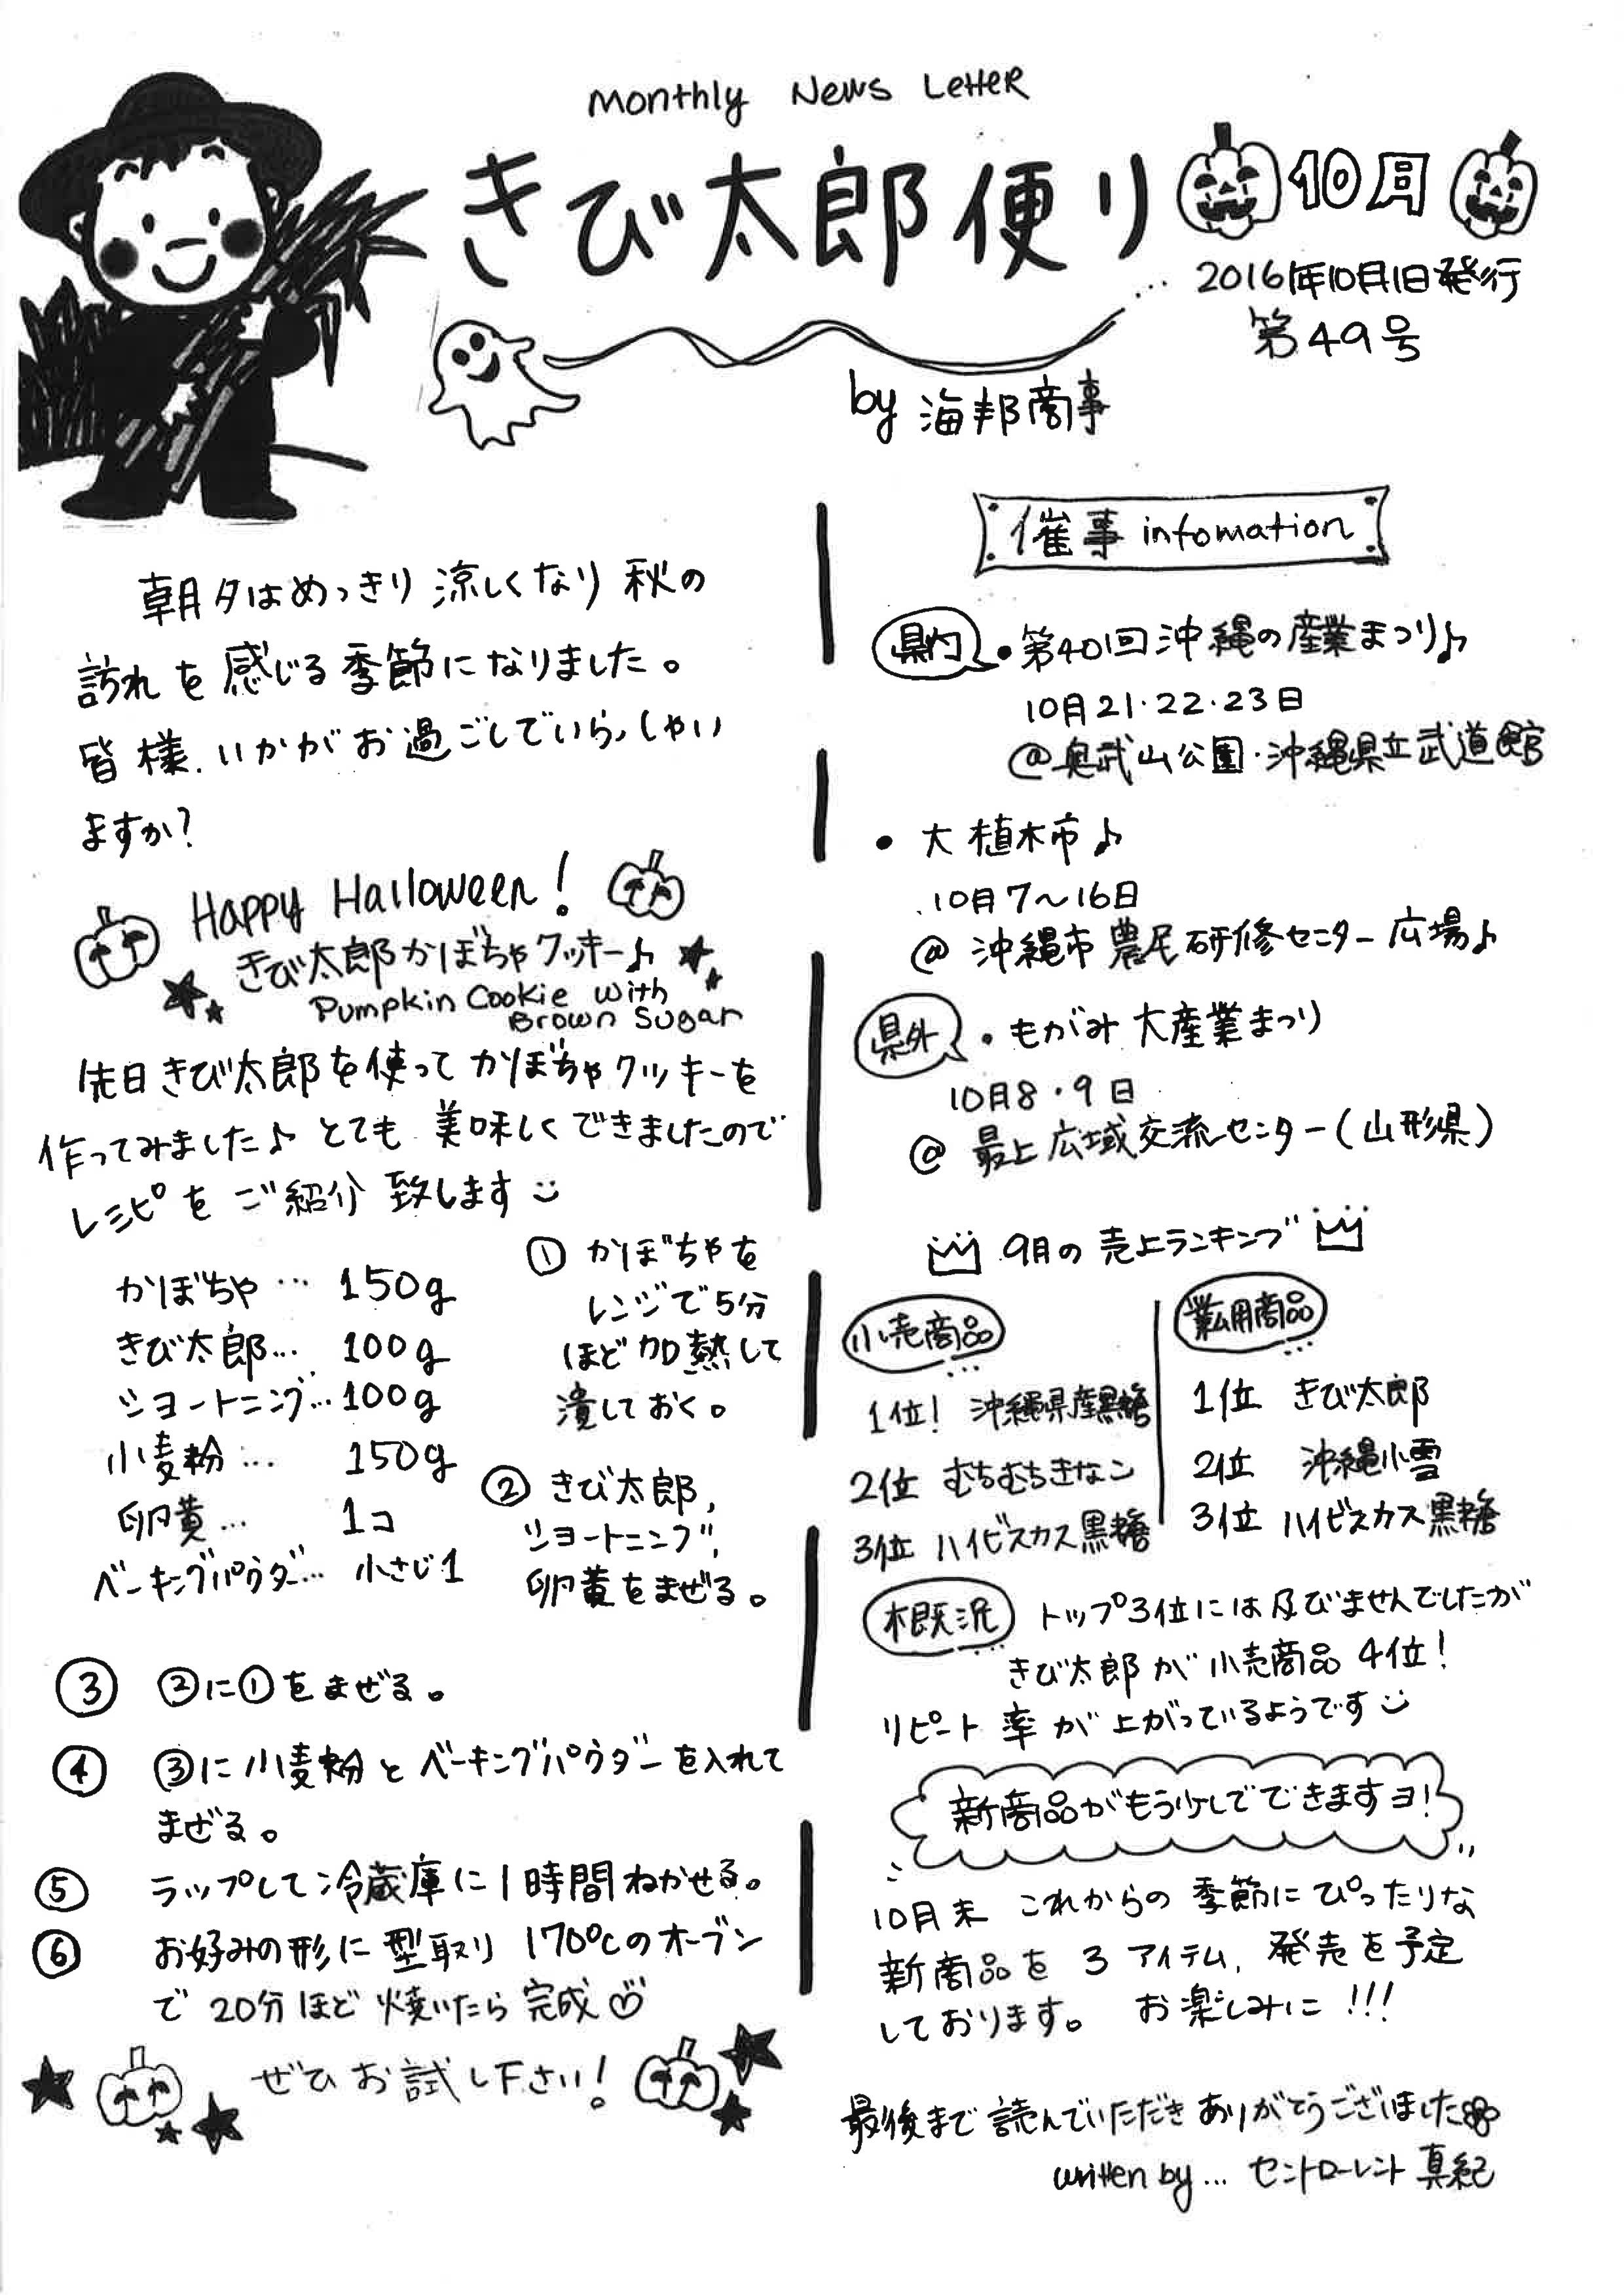 Monthly News Letter
きび太郎便り
10月
2016年10月1日発行
第49号
by 海邦商事
朝夕はめっきり涼しくなり秋の
訪れを感じる季節になりました。
皆様、いかがお過ごしでいらっしゃい
ますか?
Happy Halloween!
きび太郎かぼちゃクッキー♪
Pumpkin Cookie with
Brown Sugar
先日きび太郎を使ってかぼちゃクッキーを
作ってみました♪とても美味しくできましたので
レシピをご紹介致します
かぼちゃ… 150g
きび太郎… 100g
ショートニング…100g
小麦粉… 150g
卵黄… 1コ
ベーキングパウダー… 小さじ1
① かぼちゃを
レンジで5分
ほど加熱して
潰しておく。
② きび太郎,
ショートニング,
卵黄をまぜる。
③ ②に①をまぜる。
④ ③に小麦粉とベーキングパウダーを入れて
まぜる。
⑤ ラップして冷蔵庫に1時間ねかせる。
⑥ お好みの形に型取り 170℃のオーブン
で20分ほど焼いたら完成
ぜひお試し下さい!
催事 infomation
県内 ・第40回沖縄の産業まつり♪
10月21・22・23日
@奥武山公園・沖縄県立武道館
・大植木市♪
10月7〜16日
@ 沖縄市農民研修センター広場♪
県外 ・もがみ大産業まつり
10月8・9日
@ 最上広域交流センター(山形県)
9月の売上ランキング
小売商品…
1位! 沖縄県産黒糖
2位 むちむちきなこ
3位 ハイビスカス黒糖
業務用商品…
1位 きび太郎
2位 沖縄小雪
3位 ハイビスカス黒糖
概況… トップ3位には及びませんでしたが
きび太郎が小売商品4位!
リピート率が上がっているようです
新商品がもう少しでできますヨ!
10月末 これからの季節にぴったりな
新商品を3アイテム、発売を予定
しております。 お楽しみに!!!
最後まで読んでいただきありがとうございました
written by… セントローレント真紀